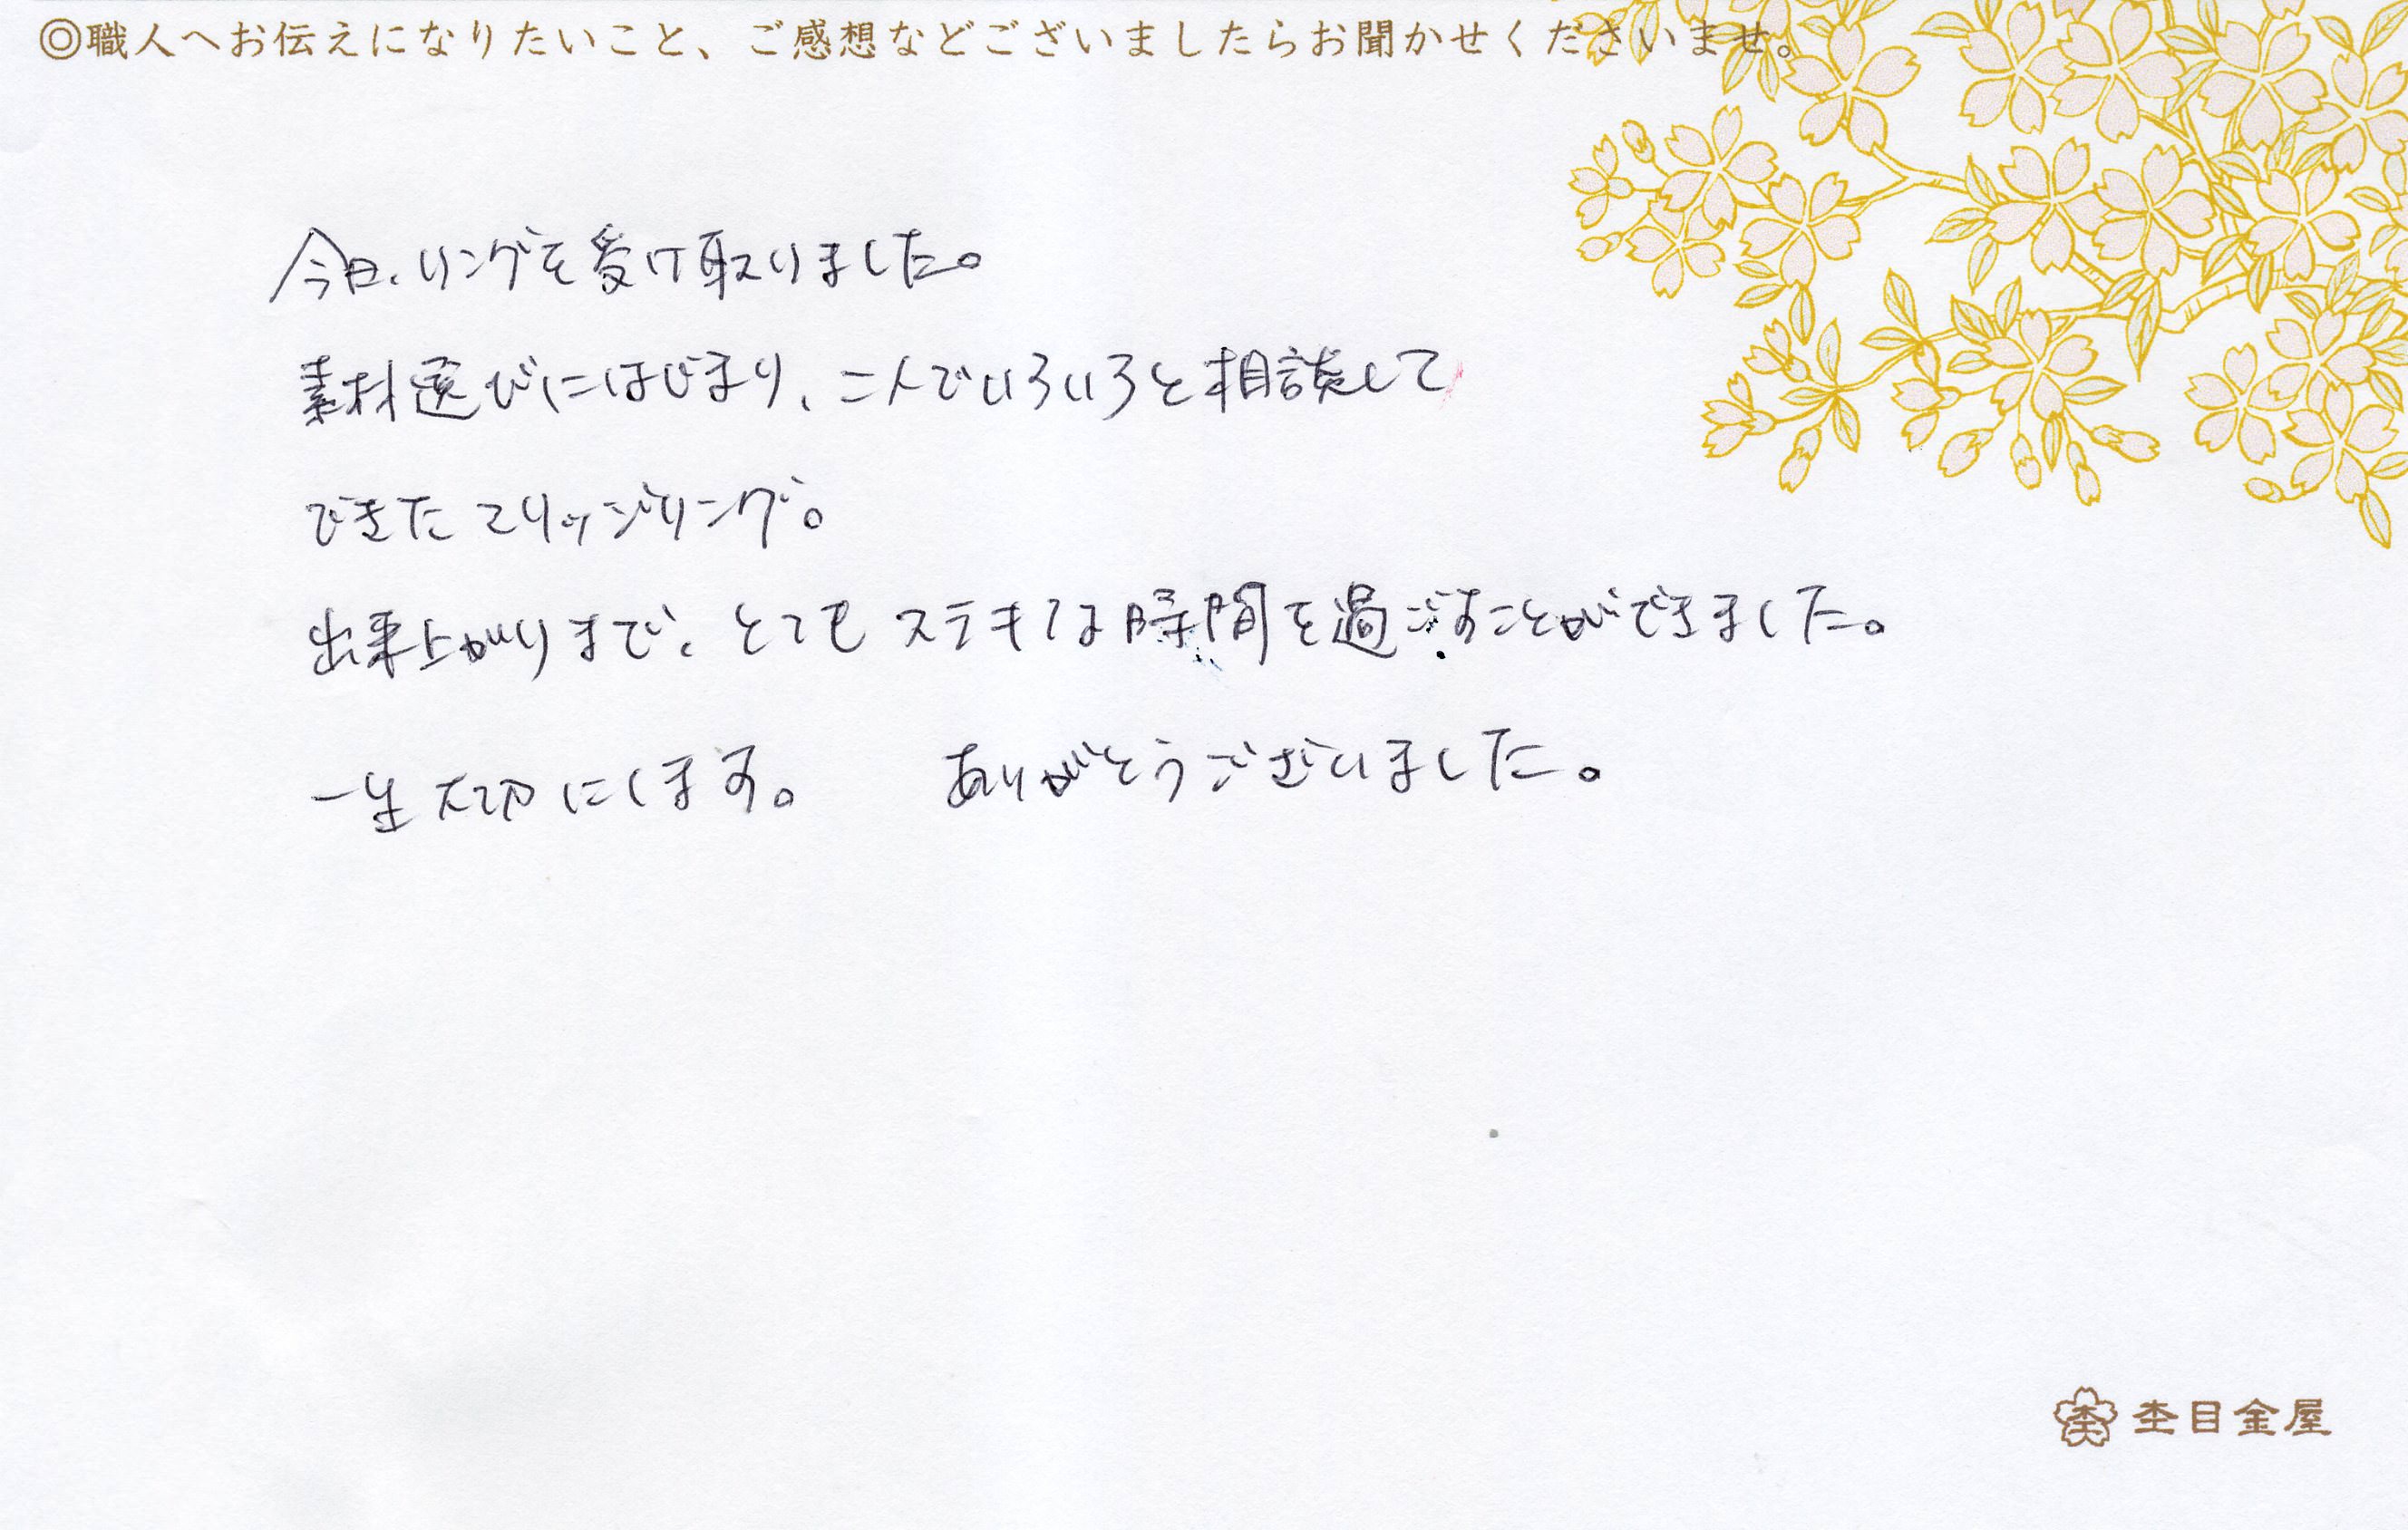 ◎職人へお伝えになりたいこと、ご感想などございましたらお聞かせくださいませ。
今日、リングを受け取りました。
素材選びにはじまり、二人でいろいろと相談して
できたマリッジリング。
出来上がりまで、とてもステキな時間を過ごすことができました。
一生大切にします。　ありがとうございました。
杢目金屋